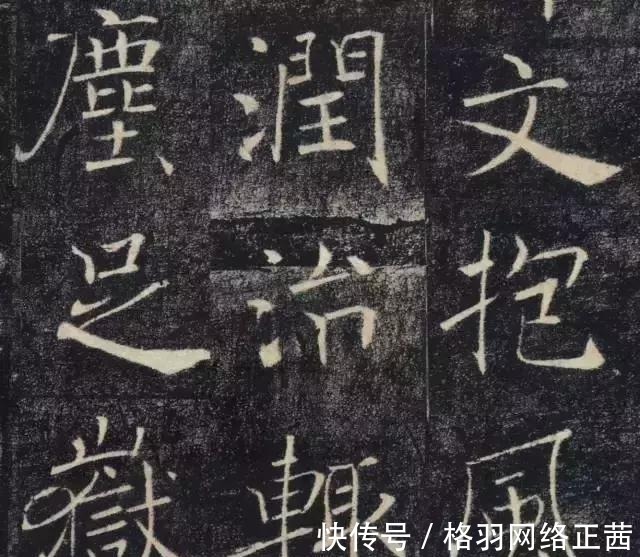 文抱風
潤
塵足嶽
快传号 / 格羽网络正茜